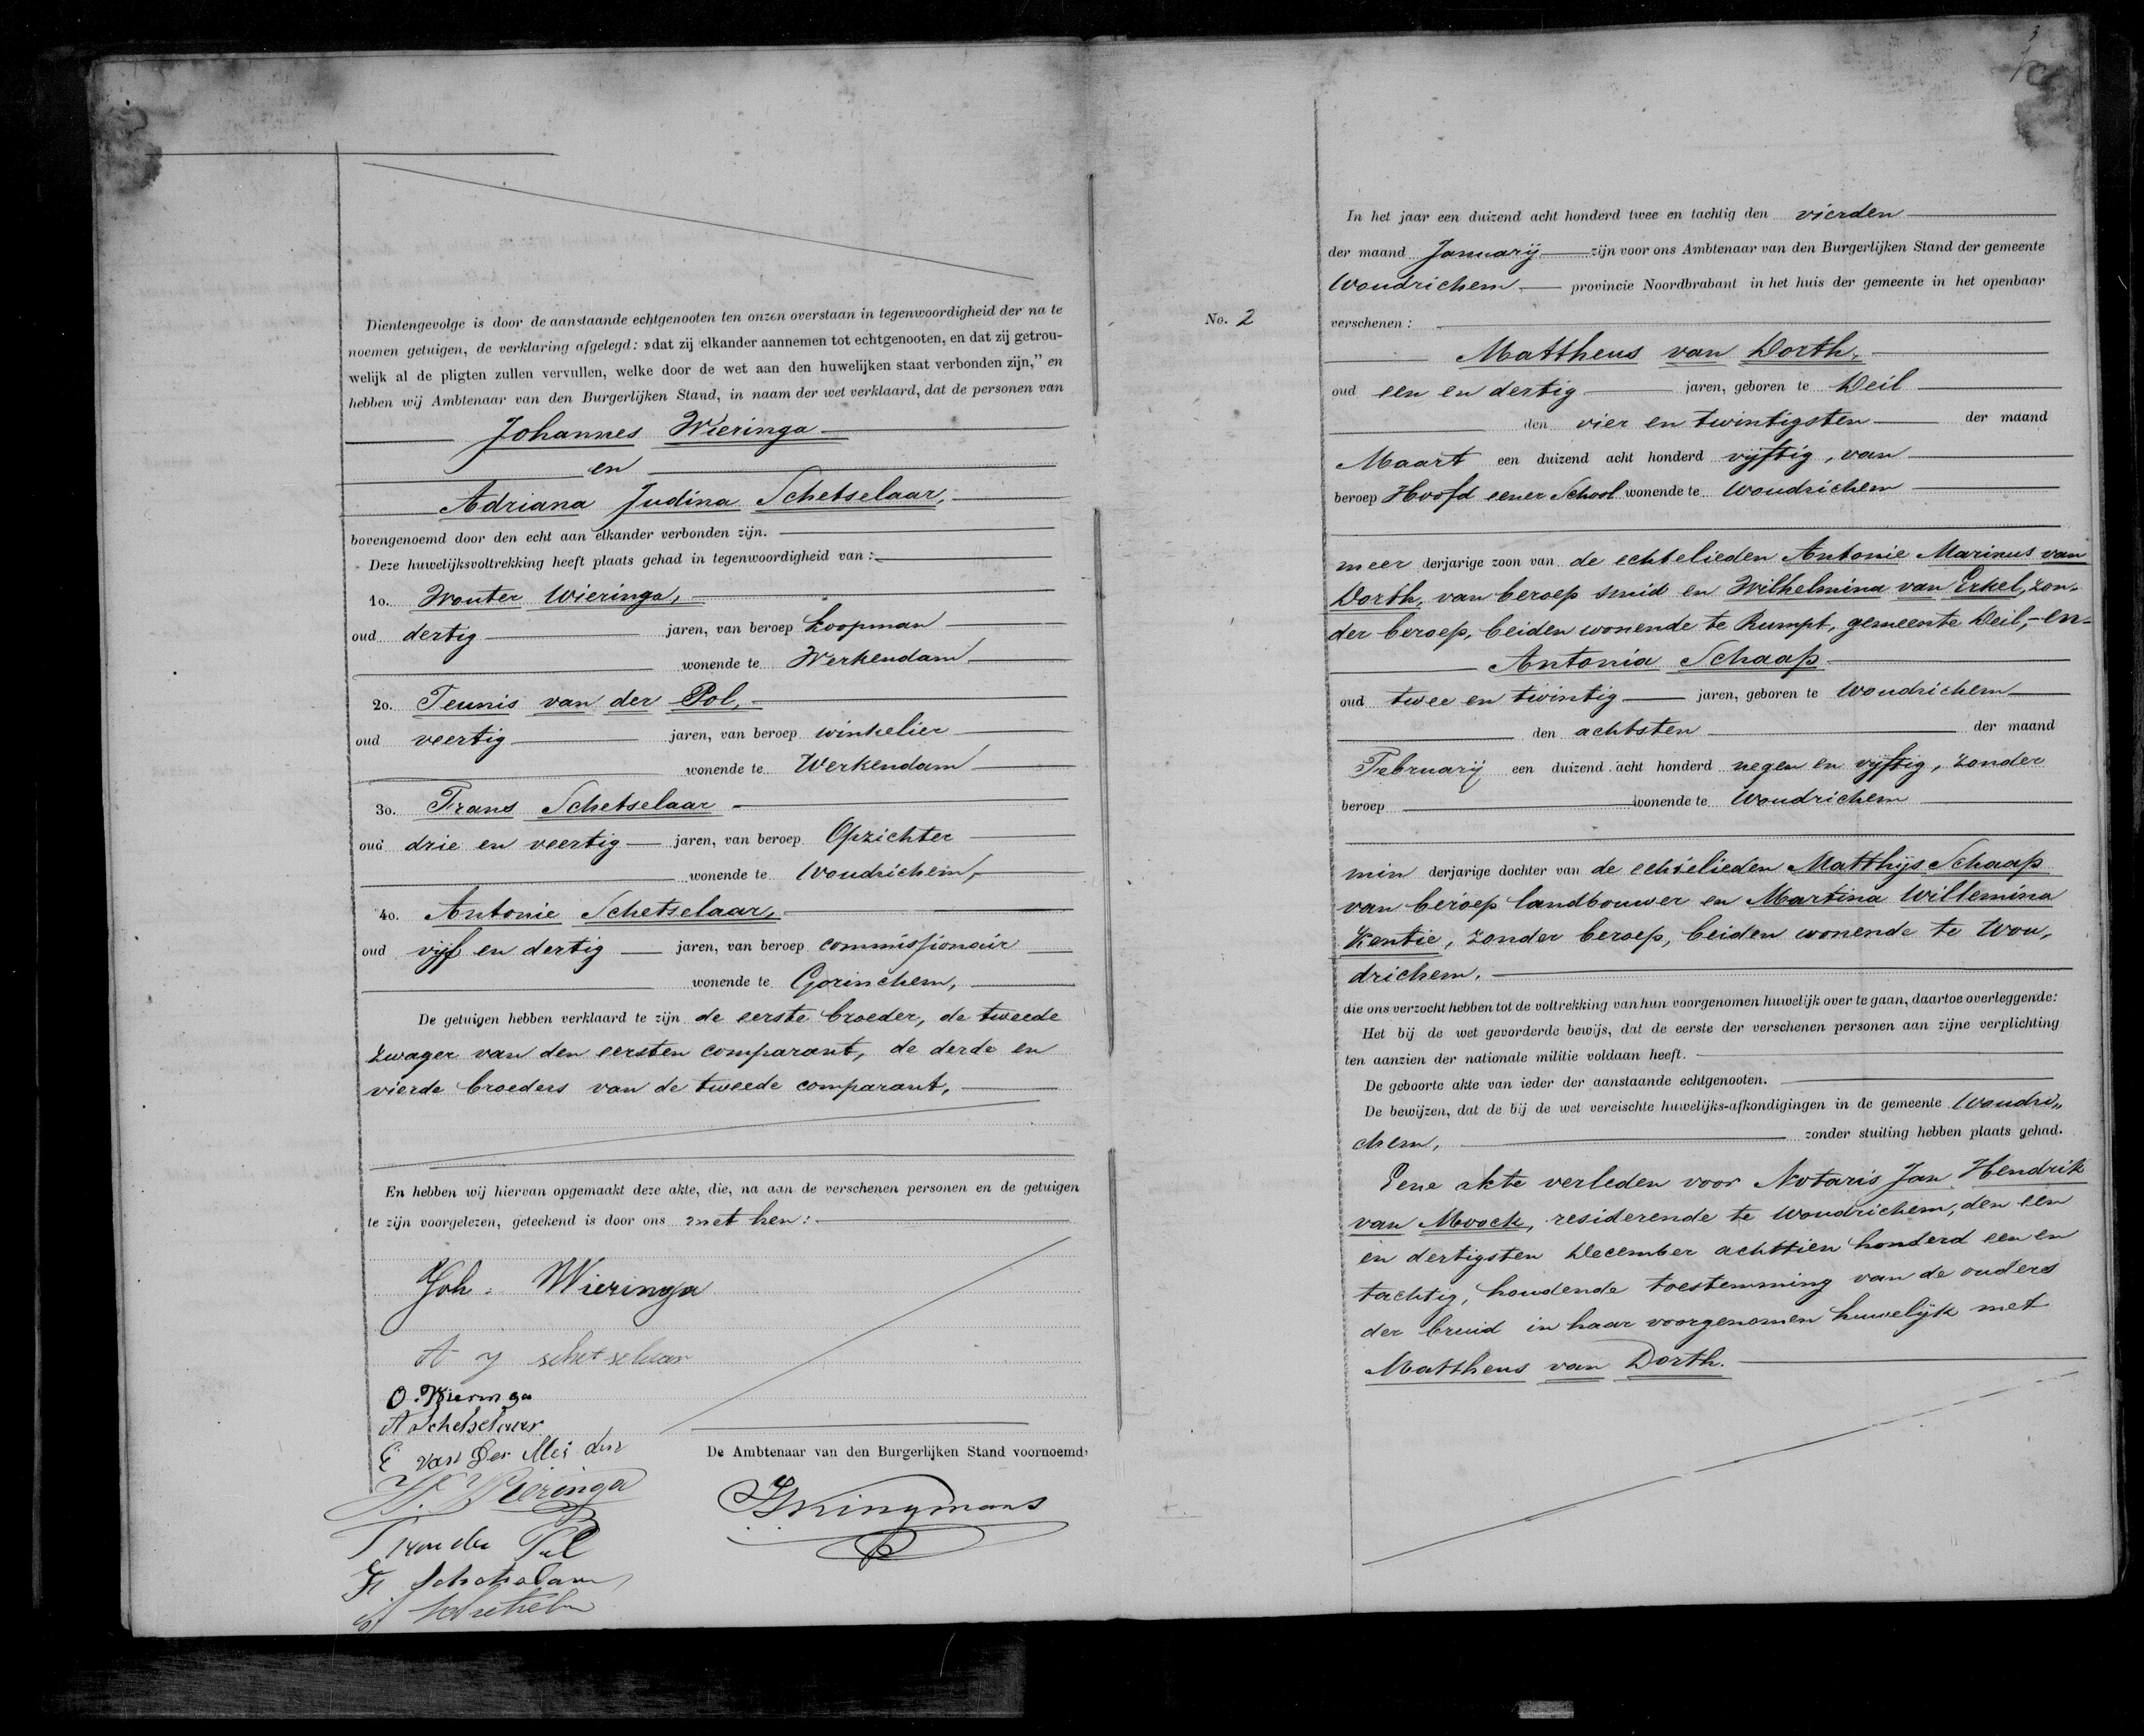 Dientengevolge is door de aanstaande echtgenooten ten onzen overstaan in tegenwoordigheid der na te
noemen getuigen, de verklaring afgelegd: »dat zij elkander aannemen tot echtgenooten, en dat zij getrou-
welijk al de pligten zullen vervullen, welke door de wet aan den huwelijken staat verbonden zijn,” en
hebben wij Ambtenaar van den Burgerlijken Stand, in naam der wet verklaard, dat de personen van
Johannes Wieringa
en
Adriana Judina Schetselaar,
bovengenoemd door den echt aan elkander verbonden zijn.
Deze huwelijksvoltrekking heeft plaats gehad in tegenwoordigheid van:
1o. Wouter Wieringa,
oud dertig jaren, van beroep koopman
wonende te Werkendam
2o. Teunis van der Pol,
oud veertig jaren, van beroep winkelier
wonende te Werkendam
3o. Frans Schetselaar
oud drie en veertig jaren, van beroep Opzichter
wonende te Woudrichem,
4o. Antonie Schetselaar,
oud vijf en dertig jaren, van beroep commissionair
wonende te Gorinchem,
De getuigen hebben verklaard te zijn de eerste broeder, de tweede
zwager van den eersten comparant, de derde en
vierde broeders van de tweede comparant,
En hebben wij hiervan opgemaakt deze akte, die, na aan de verschenen personen en de getuigen
te zijn voorgelezen, geteekend is door ons met hen:
Joh. Wieringa
A J schetselaar
O. Wieringa
A Schetselaar
E van der Meiden
W. Wieringa
T van der Pol
F Schetselaar
A Schetselaar
De Ambtenaar van den Burgerlijken Stand voornoemd,
3
No. 2
In het jaar een duizend acht honderd twee en tachtig den vierden
der maand Januarij zijn voor ons Ambtenaar van den Burgerlijken Stand der gemeente
Woudrichem, provincie Noordbrabant in het huis der gemeente in het openbaar
verschenen:
Mattheus van Dorth,
oud een en dertig jaren, geboren te Deil
den vier en twintigsten der maand
Maart een duizend acht honderd vijftig, van
beroep Hoofd eener School wonende te Woudrichem
meer derjarige zoon van de echtelieden Antonie Marinus van
Dorth, van beroep smid en Wilhelmina van Erkel, zon„
der beroep, beiden wonende te Rumpt, gemeente Deil, - en -
Antonia Schaap
oud twee en twintig jaren, geboren te Woudrichem
den achtsten der maand
Februarij een duizend acht honderd negen en vijftig, zonder
beroep wonende te Woudrichem
min derjarige dochter van de echtelieden Matthijs Schaap
van beroep landbouwer en Martina Willemina
Kentie, zonder beroep, beiden wonende te Wou„
drichem,
die ons verzocht hebben tot de voltrekking van hun voorgenomen huwelijk over te gaan, daartoe overleggende:
Het bij de wet gevorderde bewijs, dat de eerste der verschenen personen aan zijne verplichting
ten aanzien der nationale militie voldaan heeft.
De geboorte akte van ieder der aanstaande echtgenooten.
De bewijzen, dat de bij de wet vereischte huwelijks-afkondigingen in de gemeente Woudri„
chem, zonder stuiting hebben plaats gehad.
Eene akte verleden voor Notaris Jan Hendrik
van Moock, residerende te Woudrichem, den een
en dertigsten December achttien honderd een en
tachtig, houdende toestemming van de ouders
der bruid in haar voorgenomen huwelijk met
Mattheus van Dorth.